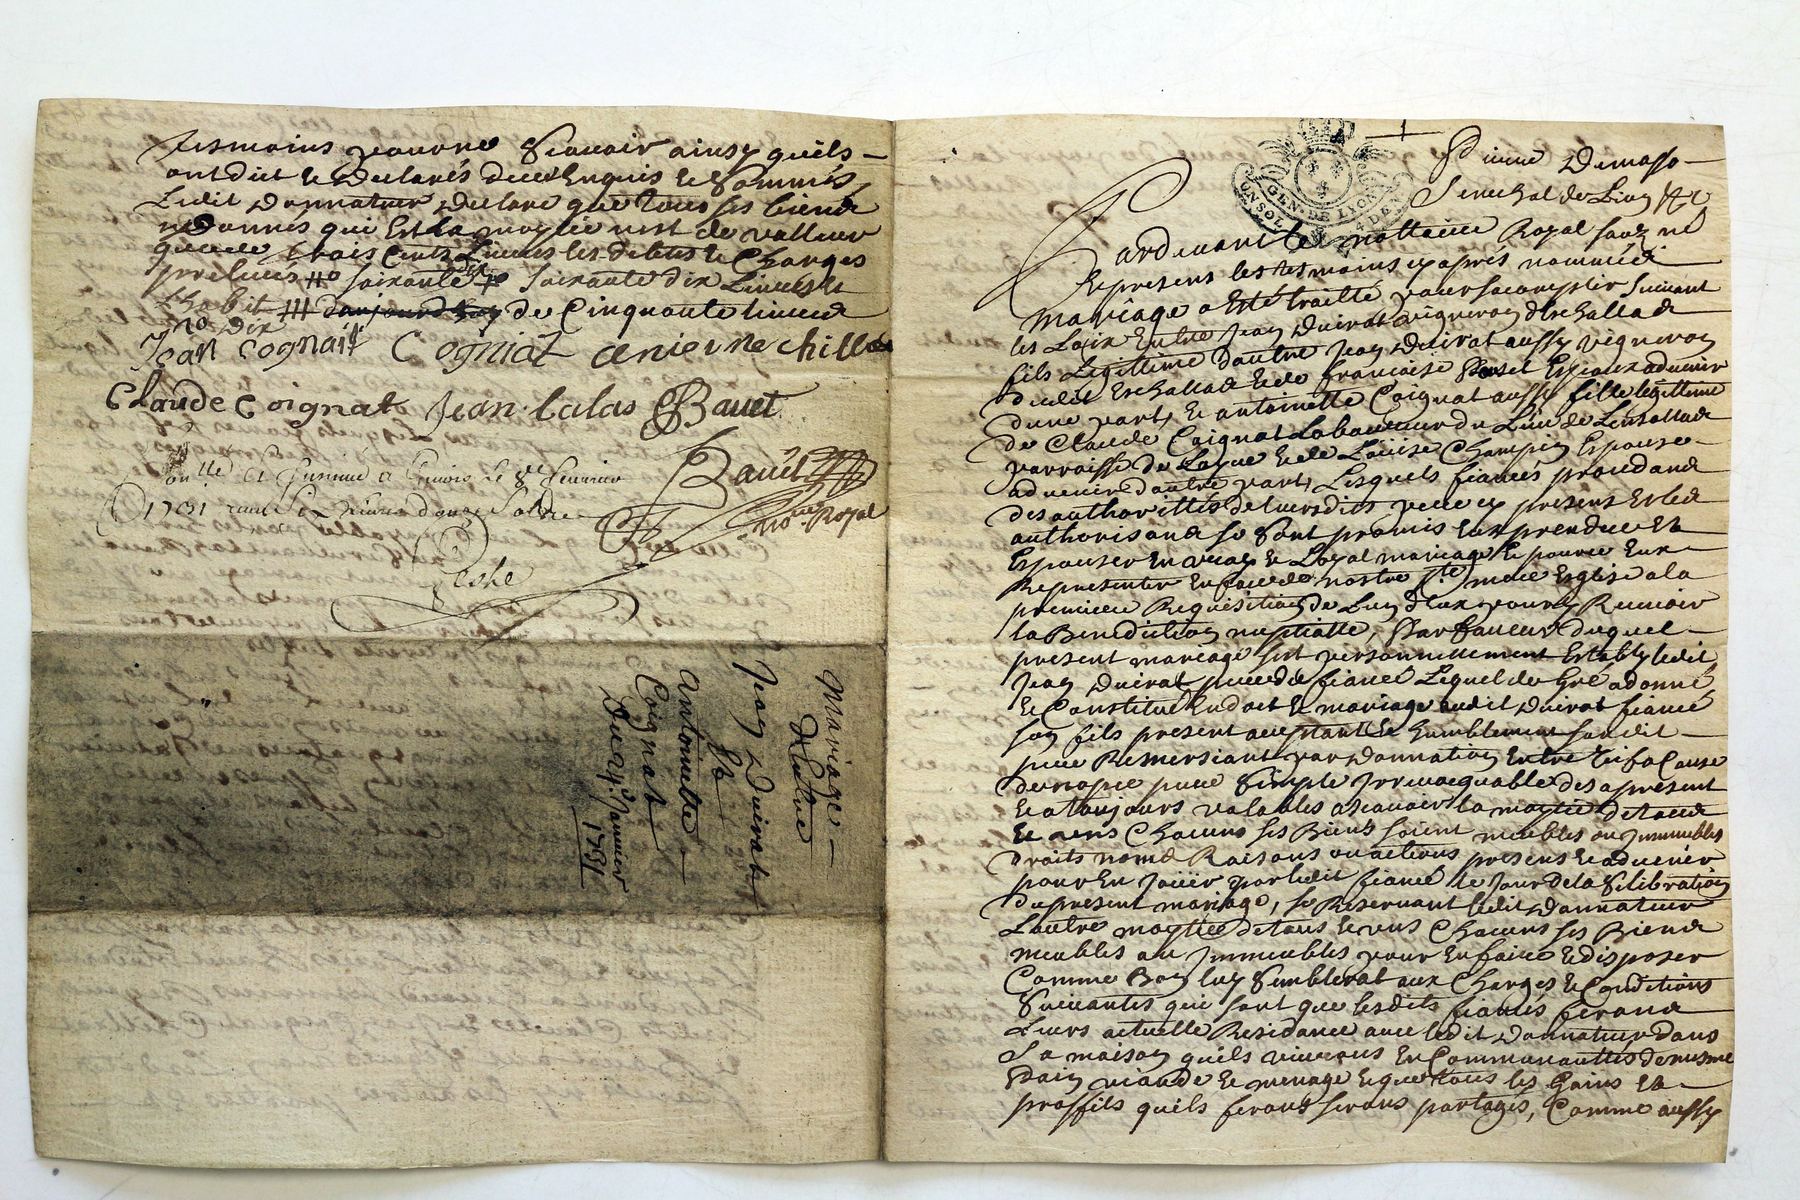 tesmoins pour ne Scavoir ainsy quils
ont dit et declarés de ce Enquis et sommés
Ledit donnateur declare que tous ses biens
donnés qui Est la moytié n'est de valleur
que de trois Cents Livres les debtes et Charges
soixante dix Livres et
L'habit de Cinquante livres
Jean Cognait Cogniat
Claude Coignat Jean Calas Bauet
Controllé et Insinué a le 8e Feurier
1731 Receu Six Liures douze Sols
Bauet
no.re Royal
Mariage
d'Entre
Jean Duirat
Et
Antoinette
Coignat
Du 29.e Januier
1731
GEN. DE LYON
Senechal de Lion
Pardeuant le nottaire Royal soubz né
Et presens les tesmoins cy apres nommés
Mariâge a Esté traitté pour s'acomplir suiuant
les Loix Entre Jean Duirat vigneron
fils Legittime d'autre Jean Duirat aussy vigneron
dudit et de francoise Espoux aduenir
d'une part, Et antoinette Coignat aussy fille legittime
de Claude Coignat Laboureur du Lieu de
parroisse de et de Loüise Champin Espouse
aduenir d'autre part, Lesquels fiancés procedans
des authorittés de leurs dits peres cy presens Et les
authorisans se sont promis Eux prendre Et
Espouser En vray et Loyal mariage Et pource Eux
Representer En face de nostre Ste mere Esglise a la
premiere Requisition de L'un d'Eux pour y Receuoir
la Benediction nuptialle, En faueur duquel
present mariage s'est personnellement Estably ledit
Jean Duirat pere du fiancé Lequel de Gré a donné
Et Constitué En dot Et mariage audit Duirat fiancé
son fils present aceptant Et humblement sondit
pere Remersiant par donnation Entre vifs a Cause
de nopce pure Simple Irreuocquable des apresent
Et a toujours valables a scauoir la moytié de tous
Et uns Chacuns ses Biens soient meubles ou Immeubles
droits noms Raisons ou actions presens Et aduenir
pour En Joüir par ledit fiancé le Jour de la Selibration
du present mariage, se Reseruant ledit donnateur
Lautre moytiée de tous Et uns Chacuns ses Biens
meubles ou Immeubles pour En faire Et disposer
Comme Bon luy Semblerat aux Charges Et Conditions
Suiuantes qui sont que lesdits fiancés feront
Leurs actuelle Residance auec ledit donnateur dans
Sa maison quils viuront En Communauttés de mesme
Pain viande Et menage Et que tous les Gains Et
proffits quils feront seront partagés, Comme aussy